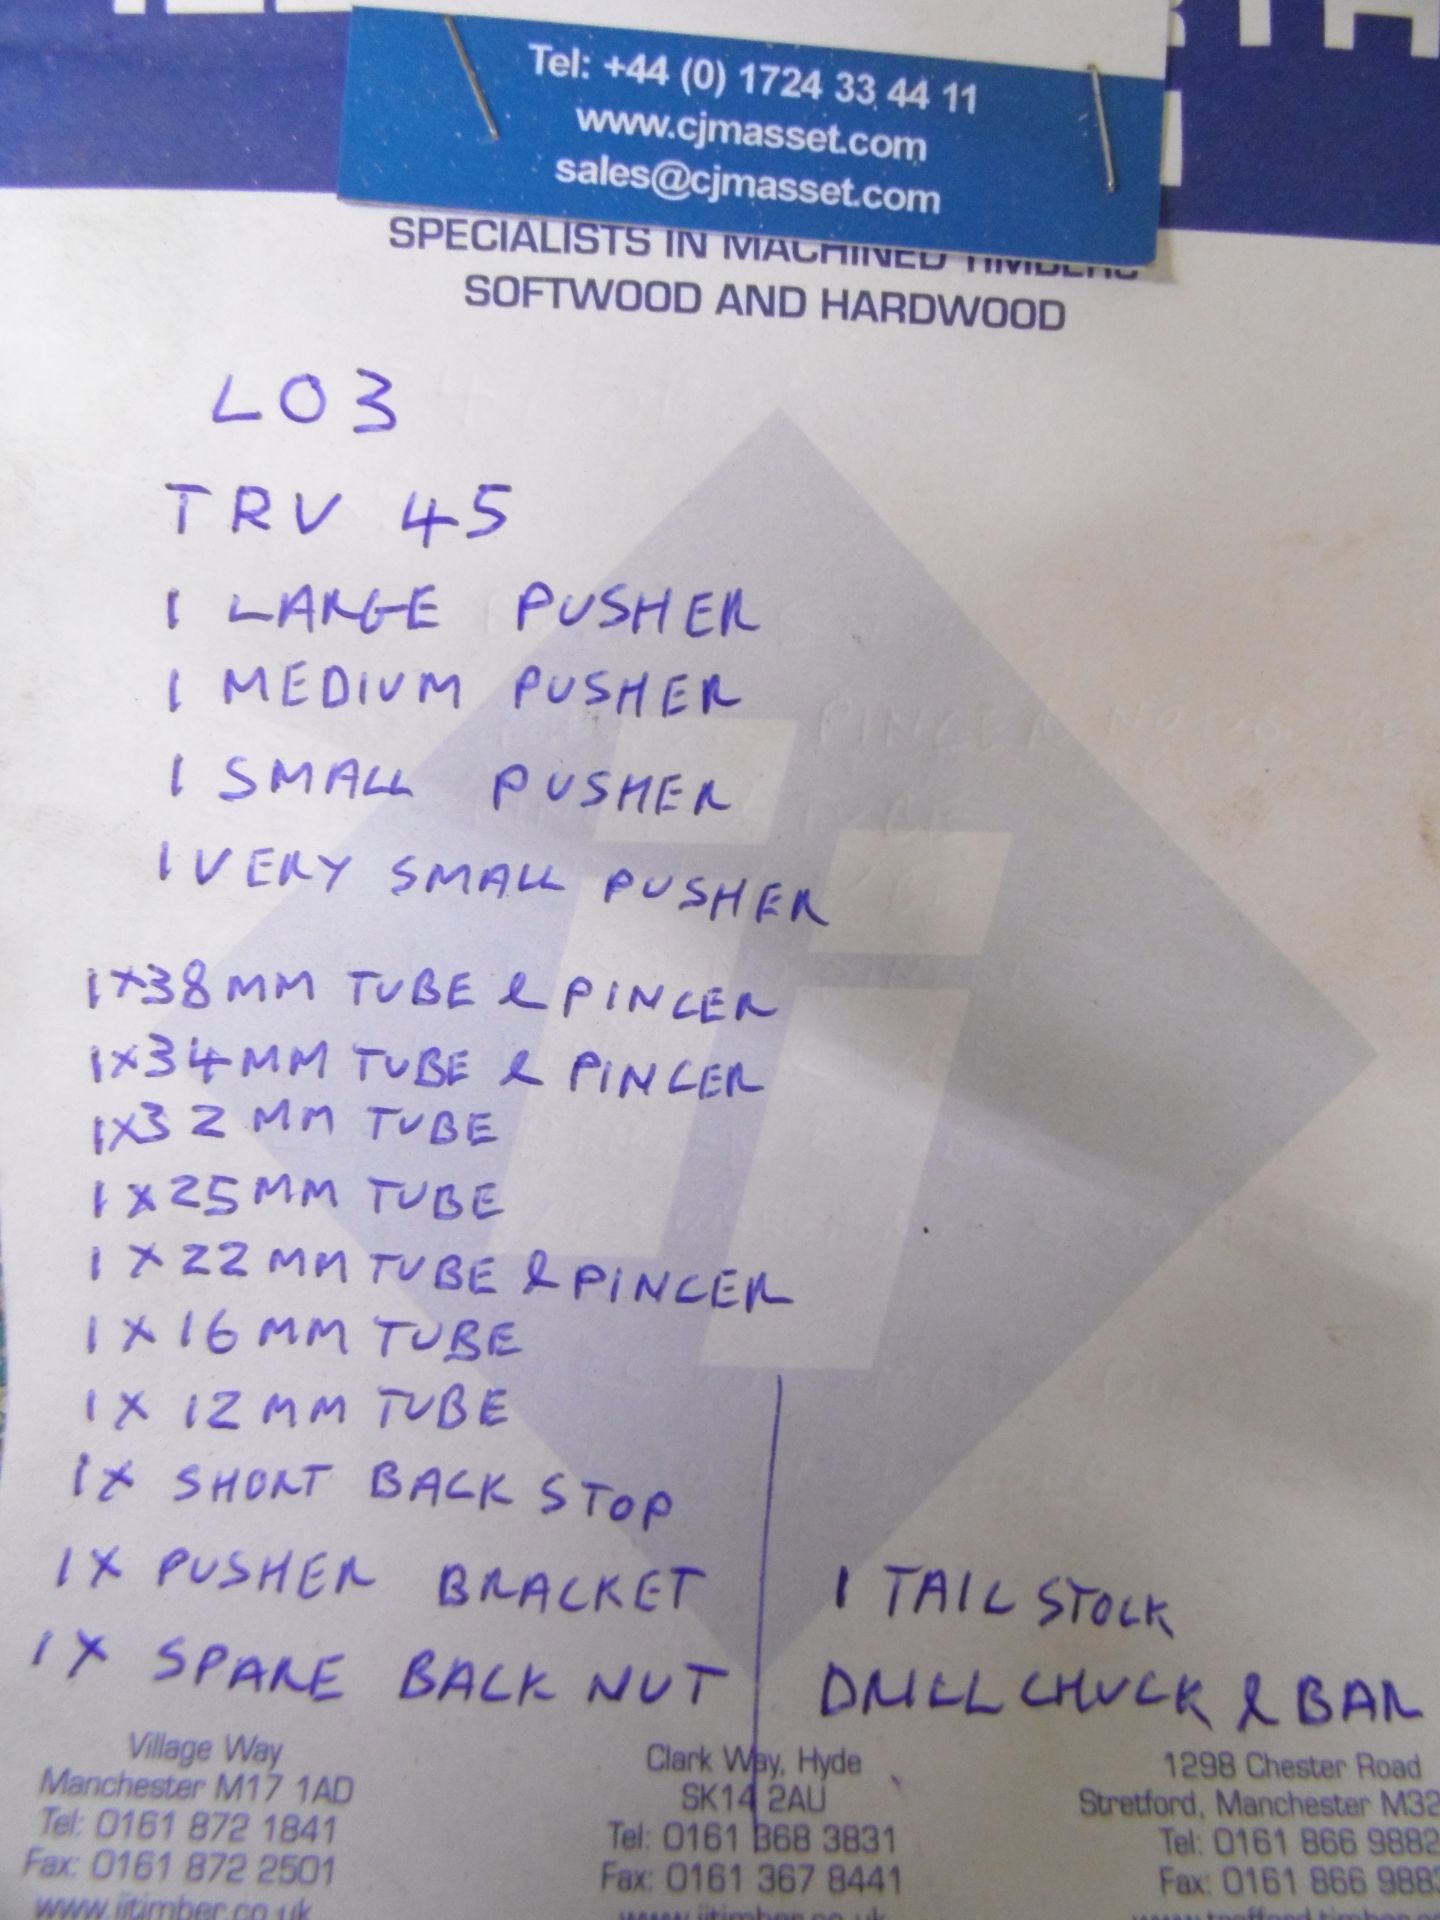 Tel: +44 (0) 1724 33 44 11
www.cjmasset.com
sales@cjmasset.com
SPECIALISTS IN MACHINED TIMBERS
SOFTWOOD AND HARDWOOD
LO3
TRV 45
1 LARGE PUSHER
1 MEDIUM PUSHER
1 SMALL PUSHER
1 VERY SMALL PUSHER
1X38MM TUBE & PINCER
1X34MM TUBE & PINCER
1X32MM TUBE
1X25MM TUBE
1X22MM TUBE & PINCER
1X16MM TUBE
1X12MM TUBE
1X SHORT BACK STOP
1X PUSHER BRACKET
1X SPARE BACK NUT
1 TAIL STOCK
DRILL CHUCK & BAR
Village Way
Manchester M17 1AD
Tel: 0161 872 1841
Fax: 0161 872 2501
www.jjtimber.co.uk
Clark Way, Hyde
SK14 2AU
Tel: 0161 368 3831
Fax: 0161 367 8441
www.jjtimber.co.uk
1298 Chester Road
Stretford, Manchester M32
Tel: 0161 866 9882
Fax: 0161 866 988